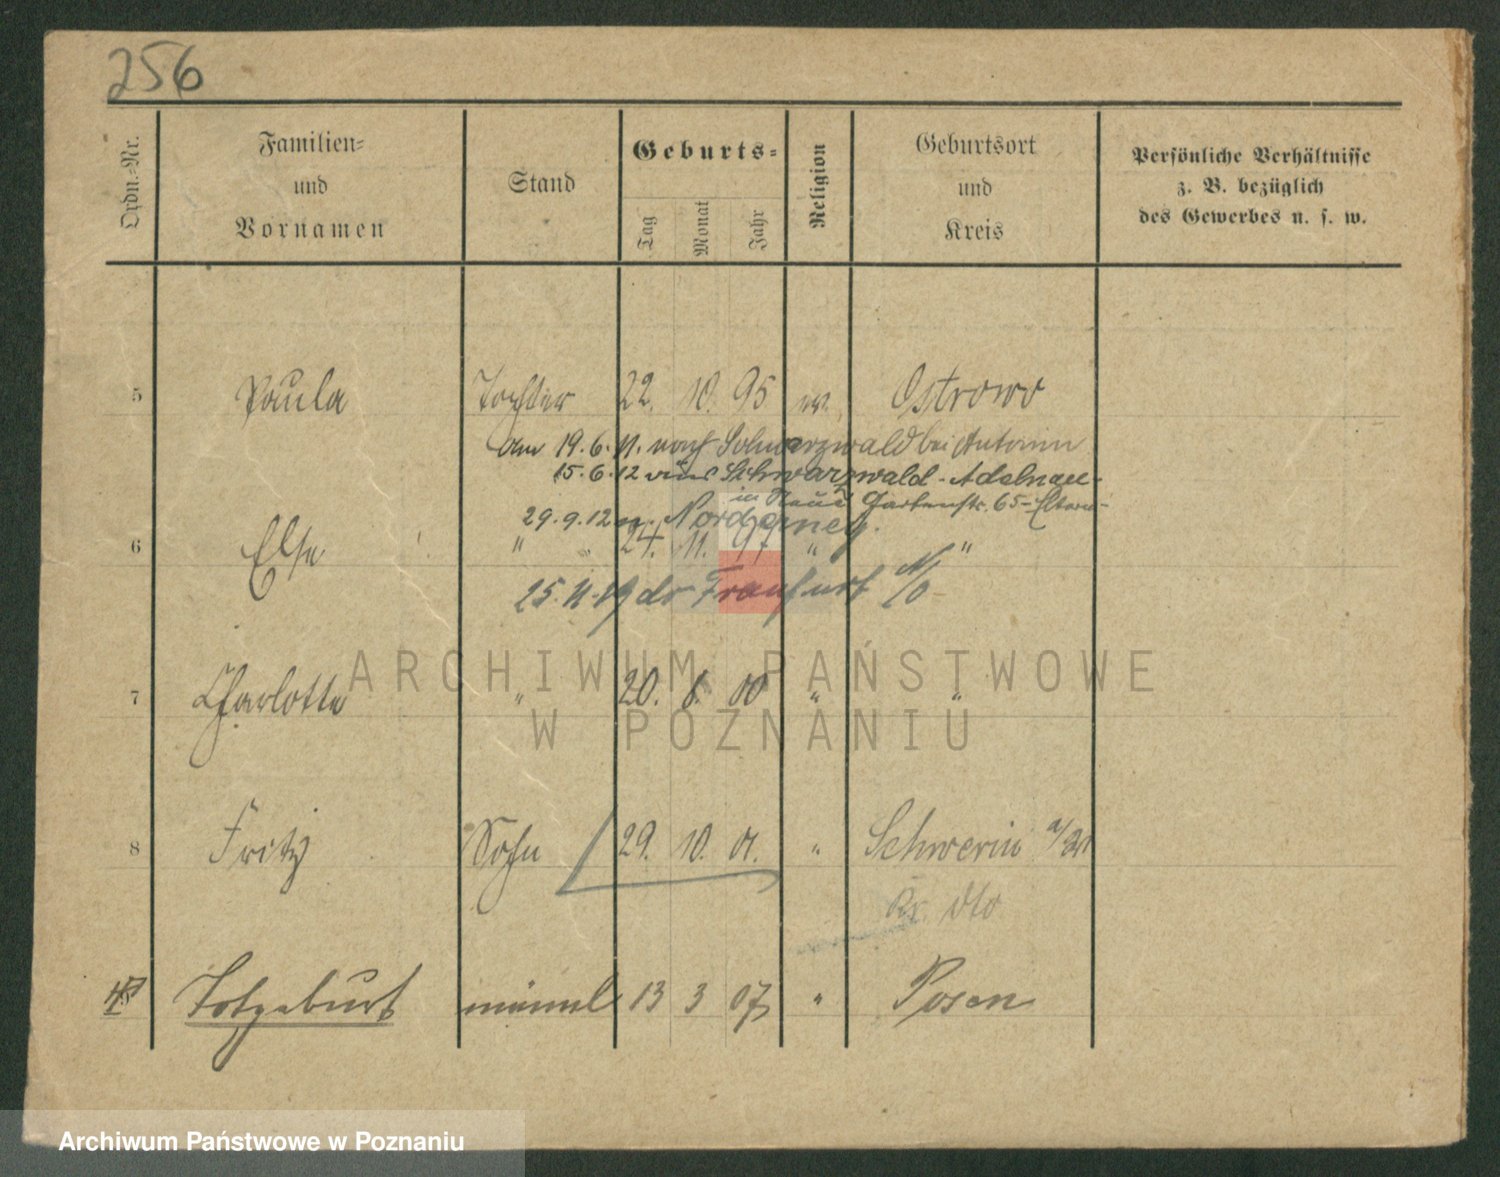 256
Ordn.-Nr. Familien- und Vornamen Stand Geburts- Tag Monat Jahr Religion Geburtsort und Kreis Persönliche Verhältnisse z. B. bezüglich des Gewerbes u. s. w.
5 Paula Tochter 22. 10. 95 ev. Ostrowo
Am 19.6.11. nach Schwarzwald bei Antonin
15.6.12 aus Schwarzwald - Adelnau -
in Neue Gartenstr. 65 - Eltern -
29.9.12 n. Norderney.
6 Else " " 24. 11. 97 " "
25.11.19 do Frankfurt a/O
7 Charlotte " 20. 8. 00 " "
8 Fritz Sohn 29. 10. 01. " Schwerin a/W
Kr. dto
Totgeburt männl 13 3 07 " Posen
ARCHIWUM PAŃSTWOWE
W POZNANIU
Archiwum Państwowe w Poznaniu